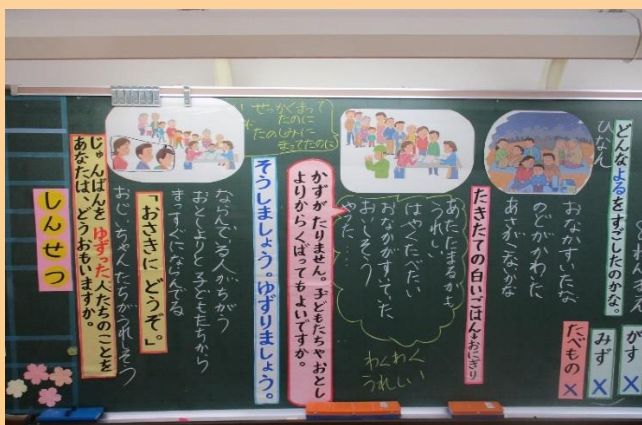 がす X
みず X
たべもの X
どんなよるをすごしたのかな。
ひなん
おなかすいたな
のどがかわいた
あさがこないかな
たきたての白いごはん・おにぎり
あたたまるかな
うれしい
はやくたべたい
おなかがすいていた
おいしそう
やった…
わくわく
うれしい
かずがたりません。子どもたちやおとし
よりからくばってもよいですか。
せっかくまって
たのに
たのしみに
まってたのに
そうしましょう。ゆずりましょう。
ならんでいる人がちがう
おとしよりと子どもたちから
まっすぐにならんでる
「おさきに どうぞ。」
おじいちゃんたちがうれしそう
じゅんばんをゆずった人たちのことを
あなたは、どうおもいますか。
しんせつ